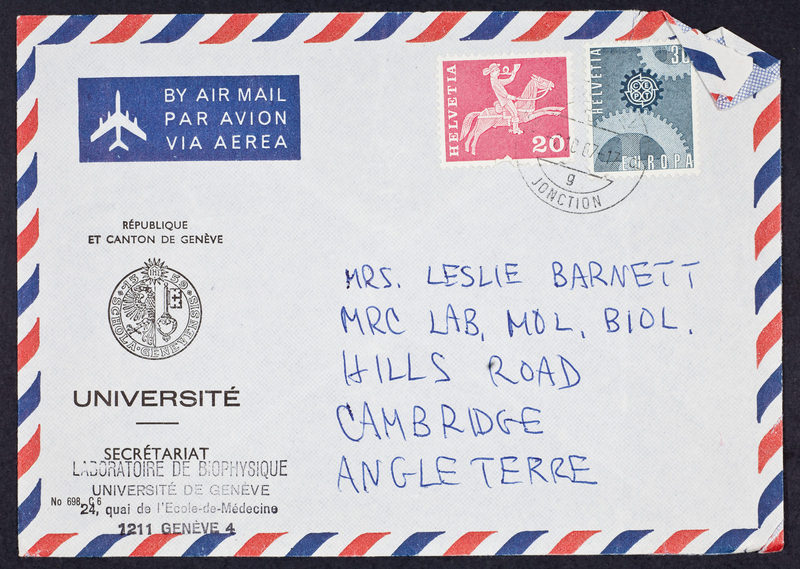 BY AIR MAIL
PAR AVION
VIA AEREA
HELVETIA
20
HELVETIA
30
CEPT
EUROPA
g
JONCTION
RÉPUBLIQUE
ET CANTON DE GENÈVE
1559
SCHOLA GENEVENSIS
UNIVERSITÉ
SECRÉTARIAT
LABORATOIRE DE BIOPHYSIQUE
UNIVERSITÉ DE GENÈVE
No 698 C 6
24, quai de l'Ecole-de-Médecine
1211 GENÈVE 4
MRS. LESLIE BARNETT
MRC LAB, MOL, BIOL.
HILLS ROAD
CAMBRIDGE
ANGLETERRE